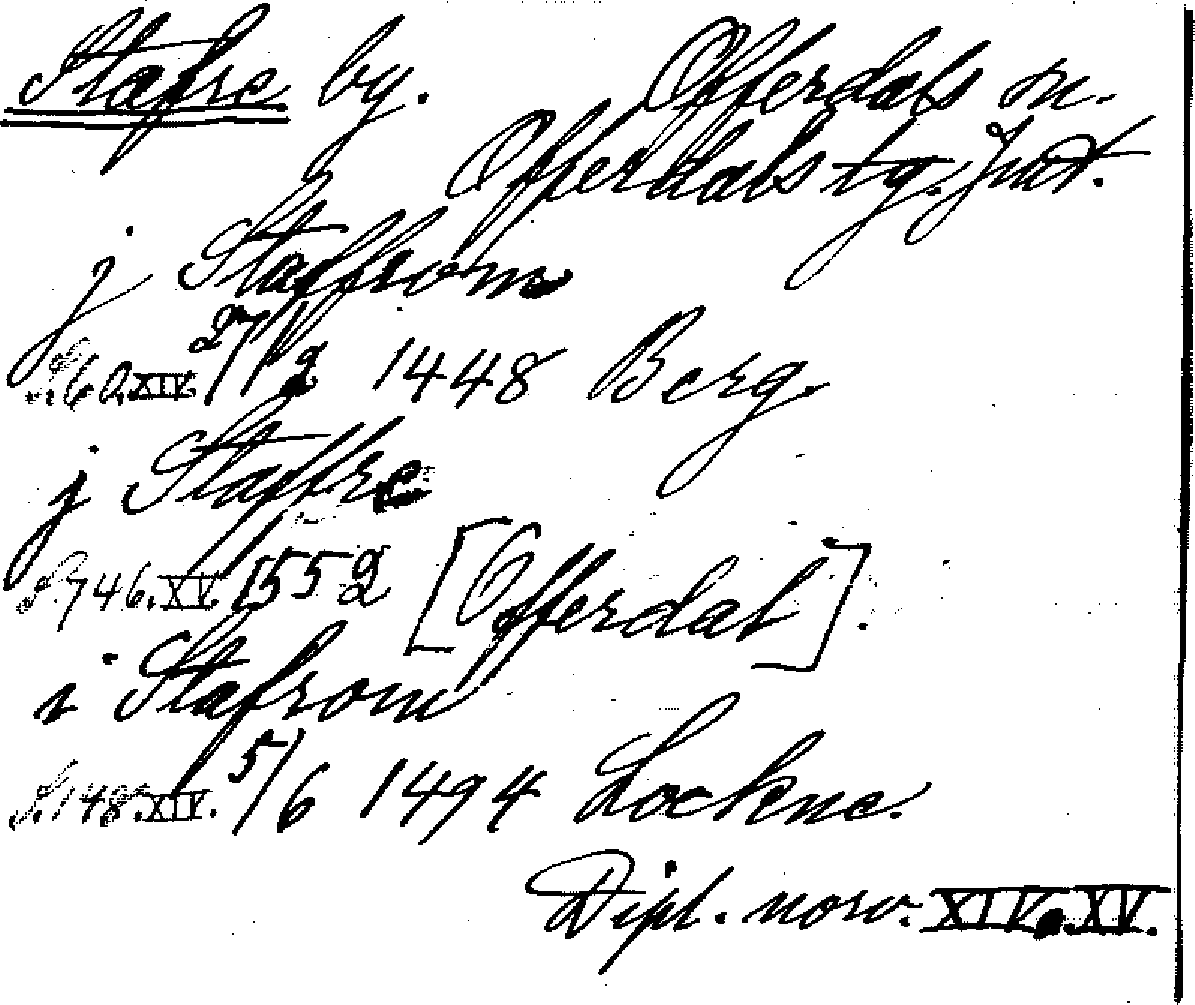 Stafre by. Offerdals sn.
Offerdals tg. Jmt.
j Staffrom
S. 60. XIV. 27/2 1448 Berg.
j Staffre
S. 746. XV. 1552 [Offerdal].
i Stafrom
S. 148. XIV. 5/6 1494 Lockne.
Dipl. norv. XIV. XV.